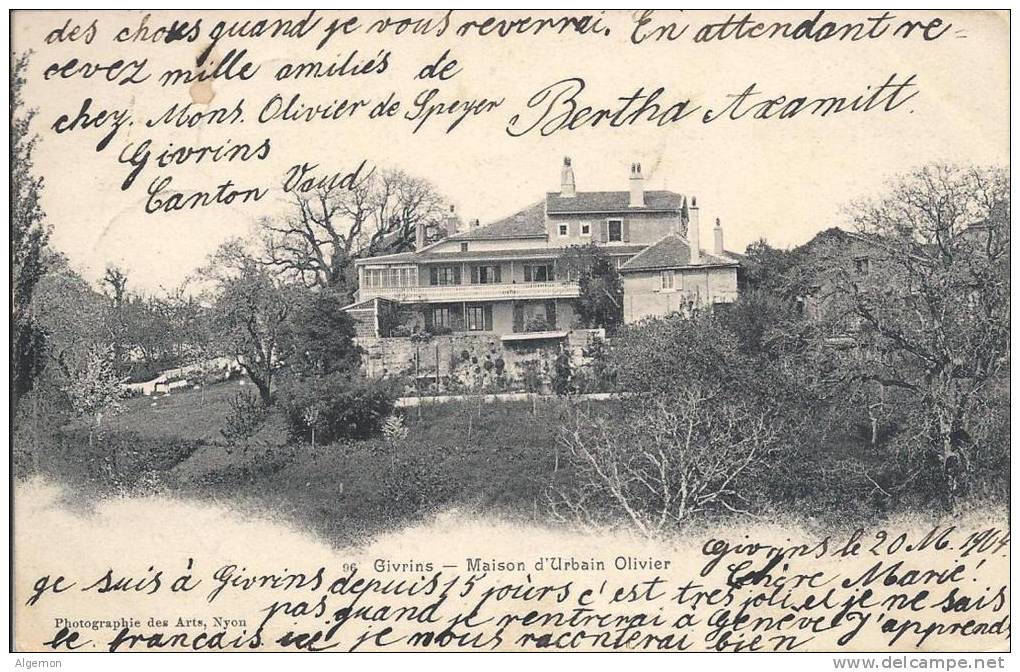 des choses quand je vous reverrai. En attendant re=
cevez mille amitiés de
chez. Mons. Olivier de Speyer Bertha Axamitt.
Givrins
Canton Vaud
96 Givrins — Maison d'Urbain Olivier
Givrins le 20 M. 1904.
Chère Marie!
ge suis à Givrins depuis 15 jours c'est tres joli et je ne sais
pas quand je rentrerai à Genève J'apprend
Photographie des Arts, Nyon
le français je vous raconterai bien
Algemon
www.delcampe.net